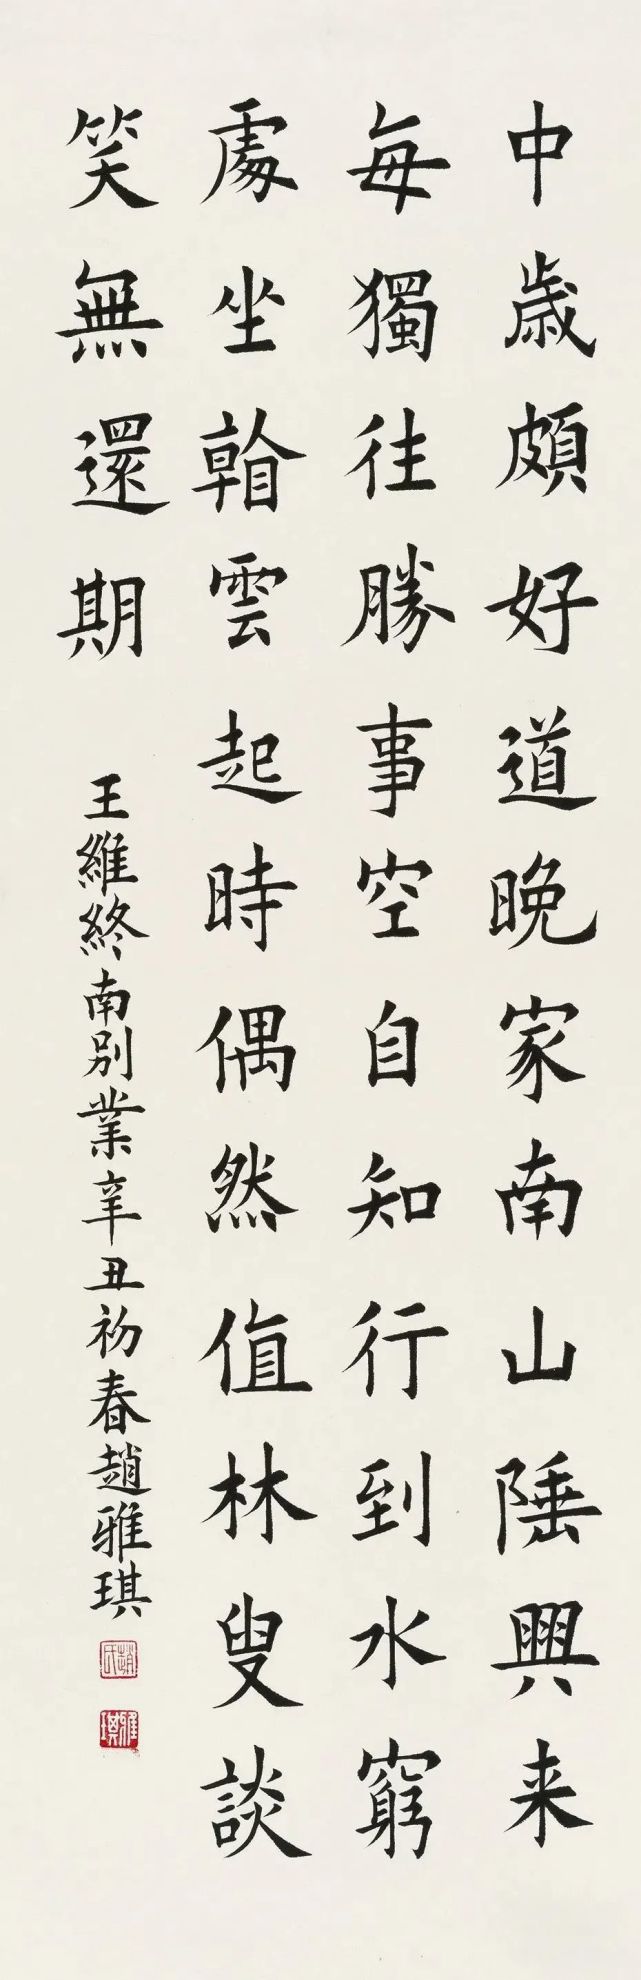 中歲頗好道晚家南山陲興来
每獨往勝事空自知行到水窮
處坐看雲起時偶然值林叟談
笑無還期
王維終南別業辛丑初春趙雅琪
趙氏
雅琪